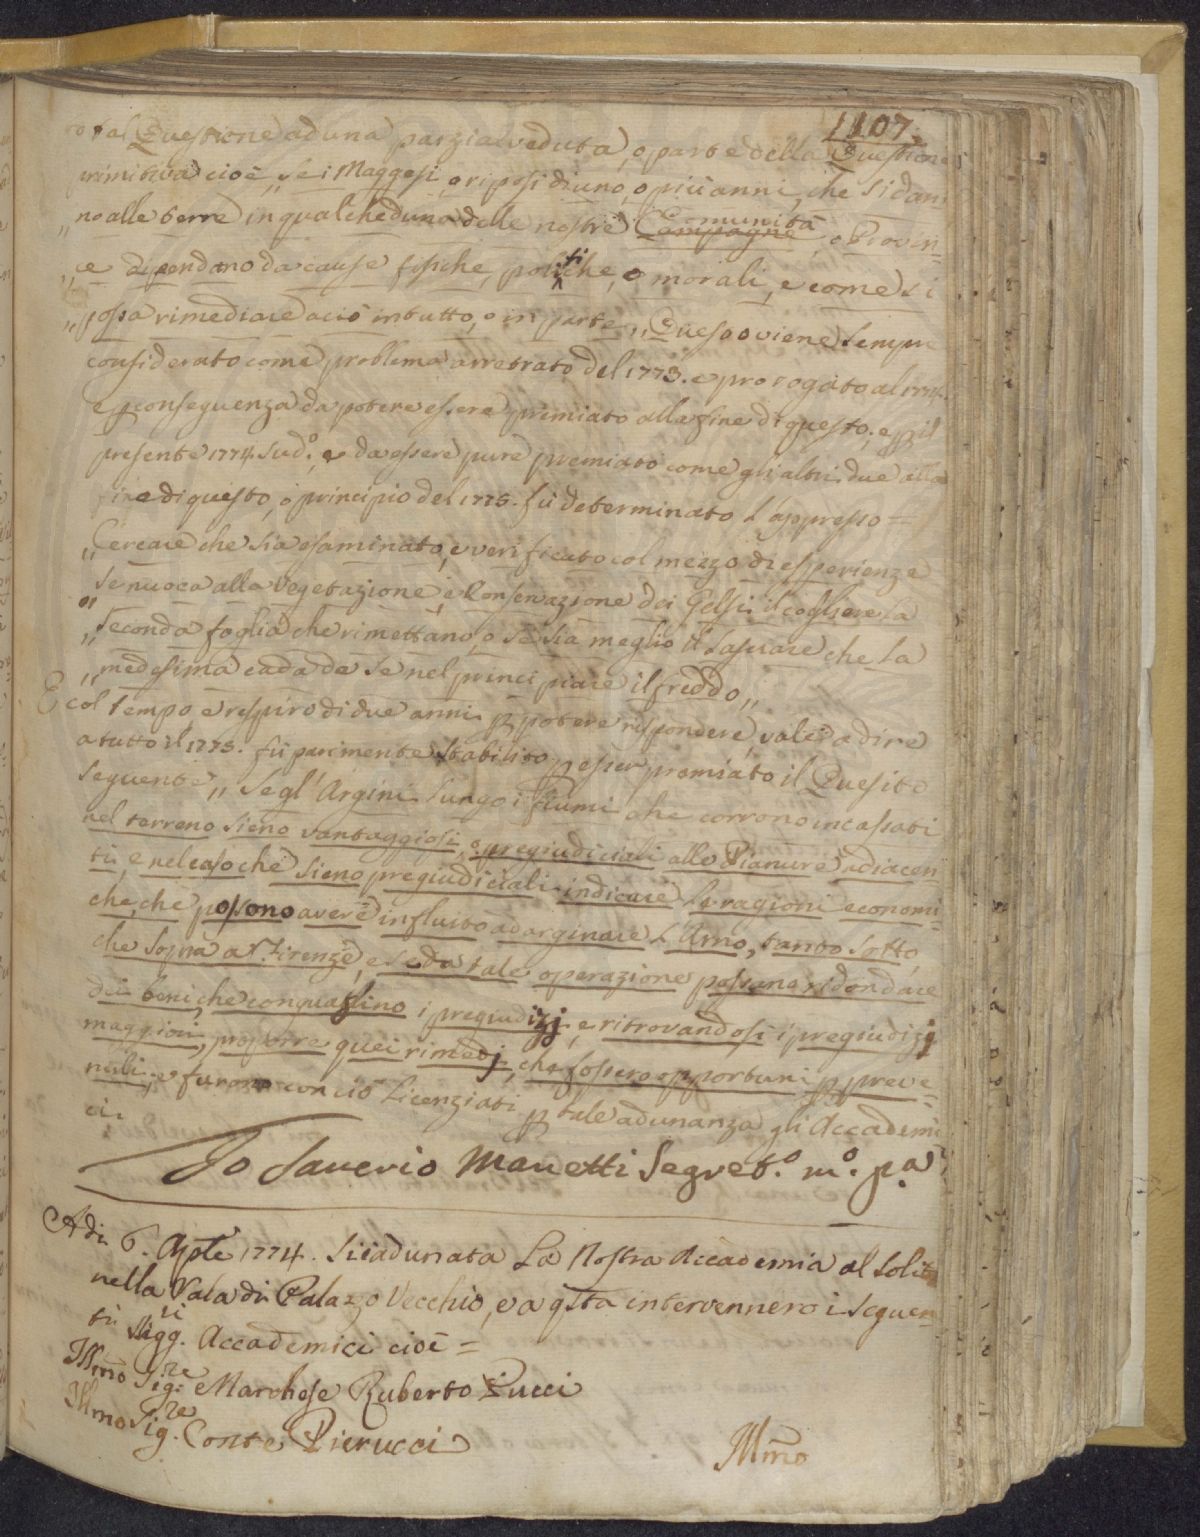 1107.
tal Questione ad una parzial veduta, o parte della Questione
primitiva cioè „ se i Maggesi, o riposi di uno, o più anni, che si dan-
„ no alle terre in qualcheduna delle nostre Campagne Comunità, o Provin-
„ ce dipendano da cause fisiche, politiche, o morali, e come si
„ possa rimediare a ciò in tutto, o in parte „ Questo viene sempre
considerato come problema arretrato del 1773. e prorogato al 1774.
e p conseguenza da potere essere premiato alla fine di questo; e p il
presente 1774. sud.º, e da essere pure premiato come gli altri due alla
fine di questo, o principio del 1775. fù determinato l'appresso =
„ Cercare che sia esaminato, e verificato col mezzo di esperienze
„ se nuoca alla vegetazione, e conservazione dei Gelsi il cogliere la
„ seconda foglia che rimettano, o se sia meglio il lasciare che la
„ medesima cada da se nel principiare il freddo „
E col tempo, e respiro di due anni p potere rispondere, vale a dire
a tutto il 1775. fù parimente stabilito p esser premiato il Quesito
seguente „ Se gl'Argini lungo i fiumi che corrono incassati
nel terreno sieno vantaggiosi, o pregiudiciali alle Pianure adiacen-
ti, e nel caso che sieno pregiudiciali indicare le ragioni economi-
che, che possono avere influito ad arginare l'Arno, tanto sotto,
che sopra a Firenze, e se da tale operazione possano ridondare
dei beni, che conguaglino i pregiudizj, e ritrovandosi i pregiudizj
maggiori, proporre quei rimedj, che fossero opportuni p preve-
nirli, e furono con ciò licenziati p tale adunanza gli Accademi-
ci.
Io Saverio Manetti Segret.º m.º p.ª
A dì 6. Aple 1774. Si è adunata La Nostra Accademia al solito
nella Sala di Palazzo Vecchio, e a qsta intervennero i seguen-
ti Sigg.ri Accademici cioè =
Illmo Sig.re Marchese Ruberto Pucci
Illmo Sig.re Conte Pierucci
Illmo